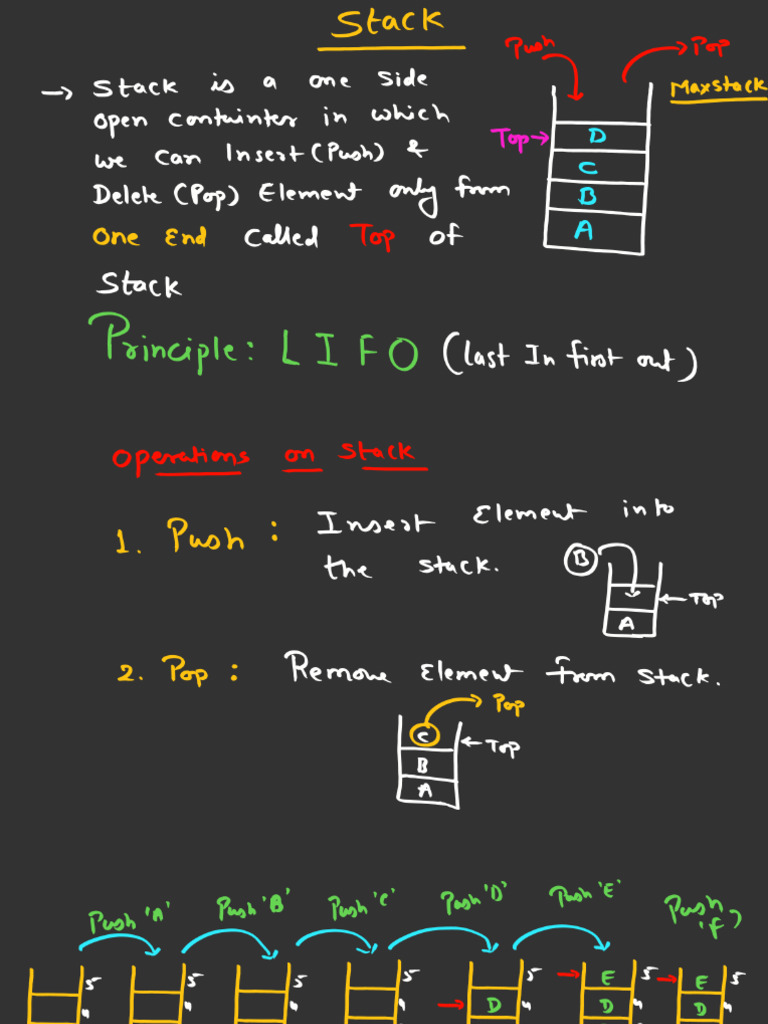 Stack
Push
Pop
Maxstack
→ Stack is a one side
open containter in which
we can Insert (Push) &
Delete (Pop) Element only from
One End called Top of
Stack
Top→
D
C
B
A
Principle: LIFO (last In first out)
Operations on Stack
1. Push : Insert Element into
the stack.
B
←Top
A
2. Pop : Remove Element from stack.
Pop
C
←Top
B
A
Push 'A'
Push 'B'
Push 'C'
Push 'D'
Push 'E'
Push 'F'
5 5 5 5 5 E 5 E 5
4 4 4 4 D 4 D 4 D 4